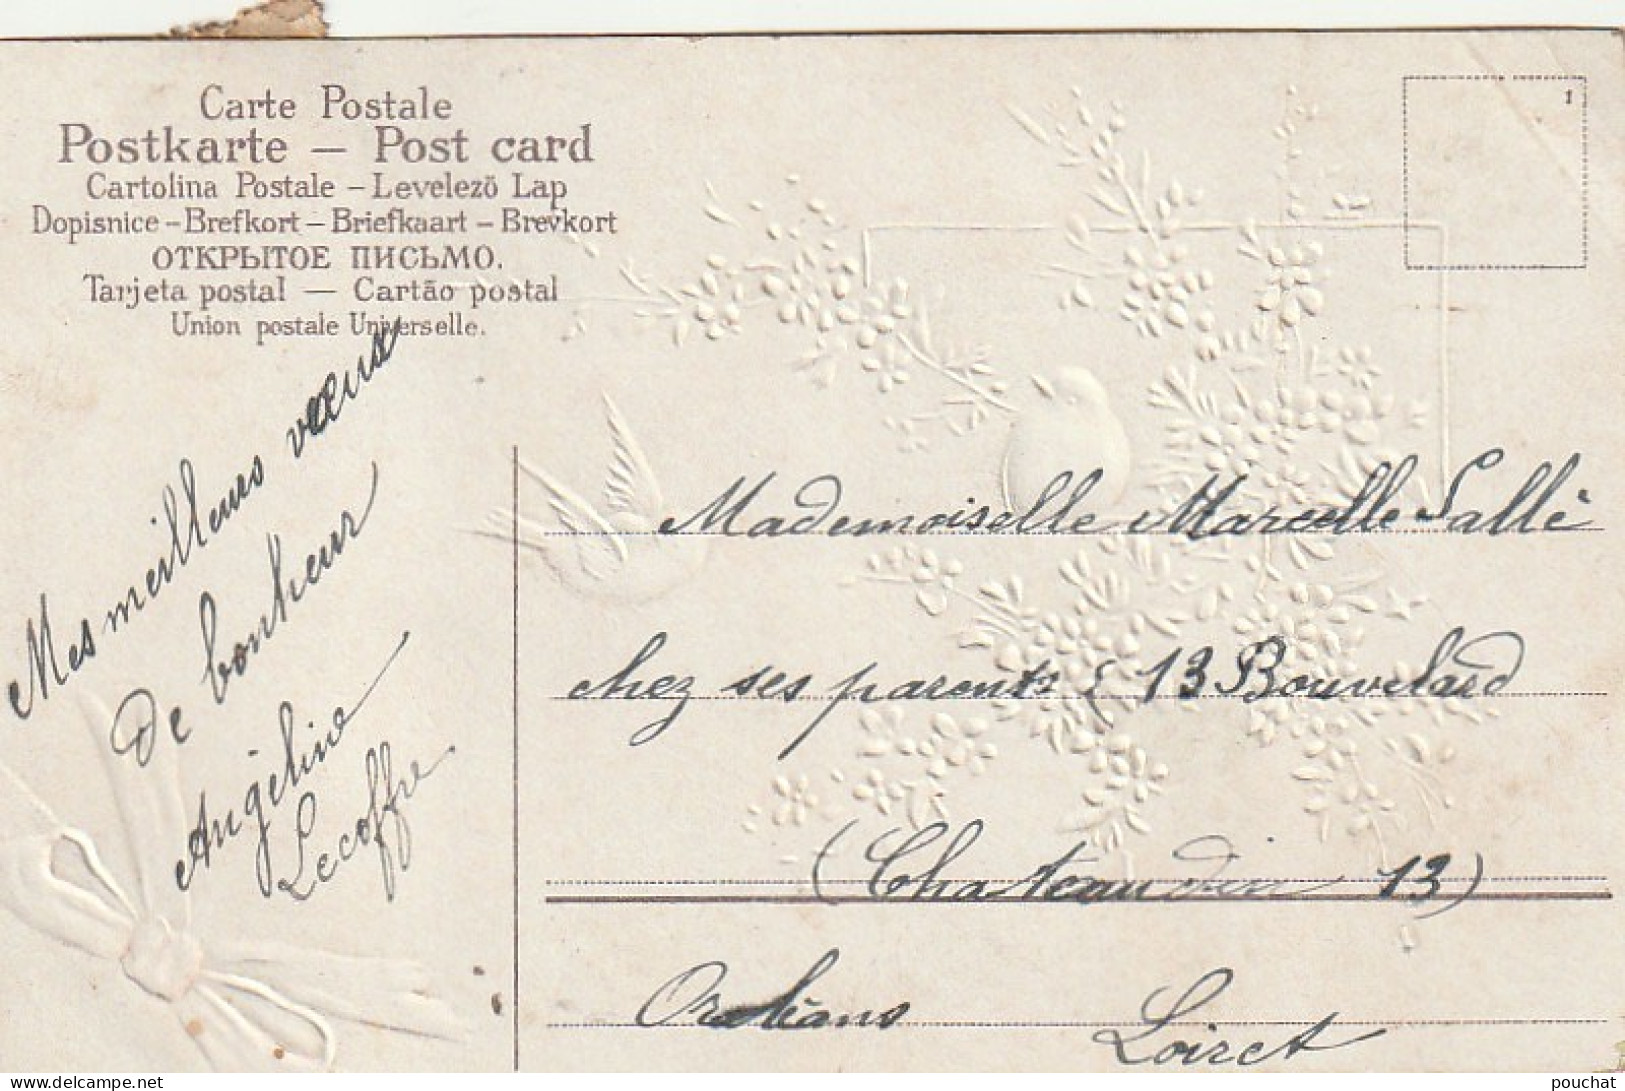 Carte Postale
Postkarte – Post card
Cartolina Postale – Levelező Lap
Dopisnice – Brefkort – Briefkaart – Brevkort
ОТКРЫТОЕ ПИСЬМО.
Tarjeta postal — Cartão postal
Union postale Universelle.
1
Mes meilleurs vœux
de bonheur
Angéline
Lecoffre
Mademoiselle Marcelle Sallé
chez ses parents 13 Bouvelard
(Chateaudun 13)
Orléans
Loiret
delcampe.net
pouchat